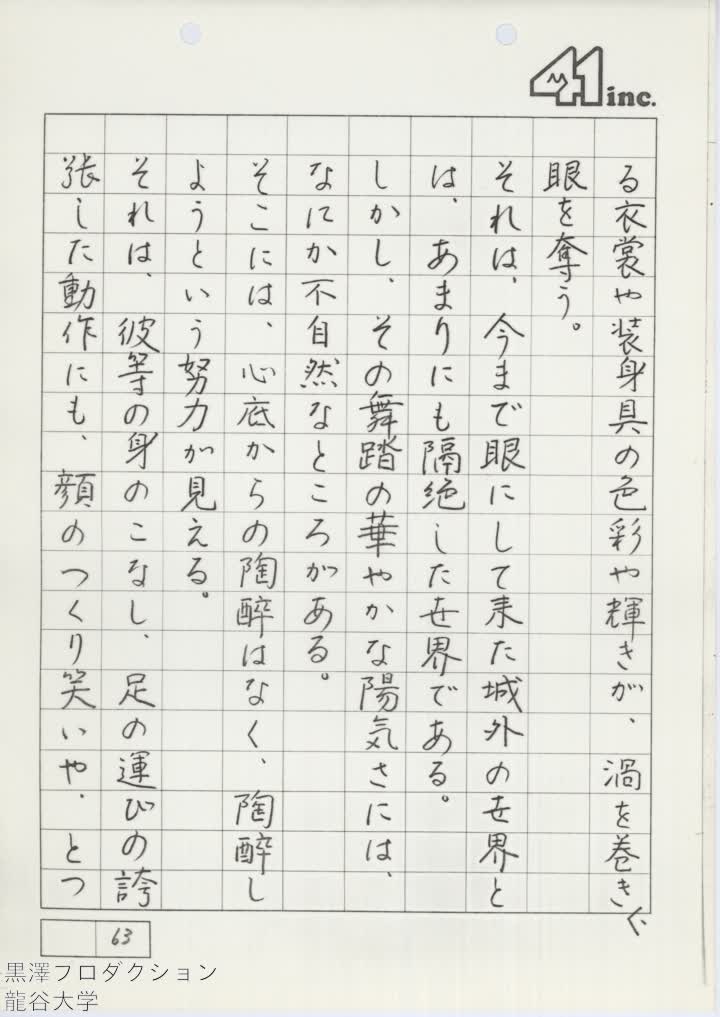 41 inc.
る衣裳や装身具の色彩や輝きが、渦を巻き、
眼を奪う。
それは、今まで眼にして来た城外の世界と
は、あまりにも隔絶した世界である。
しかし、その舞踏の華やかな陽気さには、
なにか不自然なところがある。
そこには、心底からの陶酔はなく、陶酔し
ようという努力が見える。
それは、彼等の身のこなし、足の運びの誇
張した動作にも、顔のつくり笑いや、とつ
63
黒澤プロダクション
龍谷大学